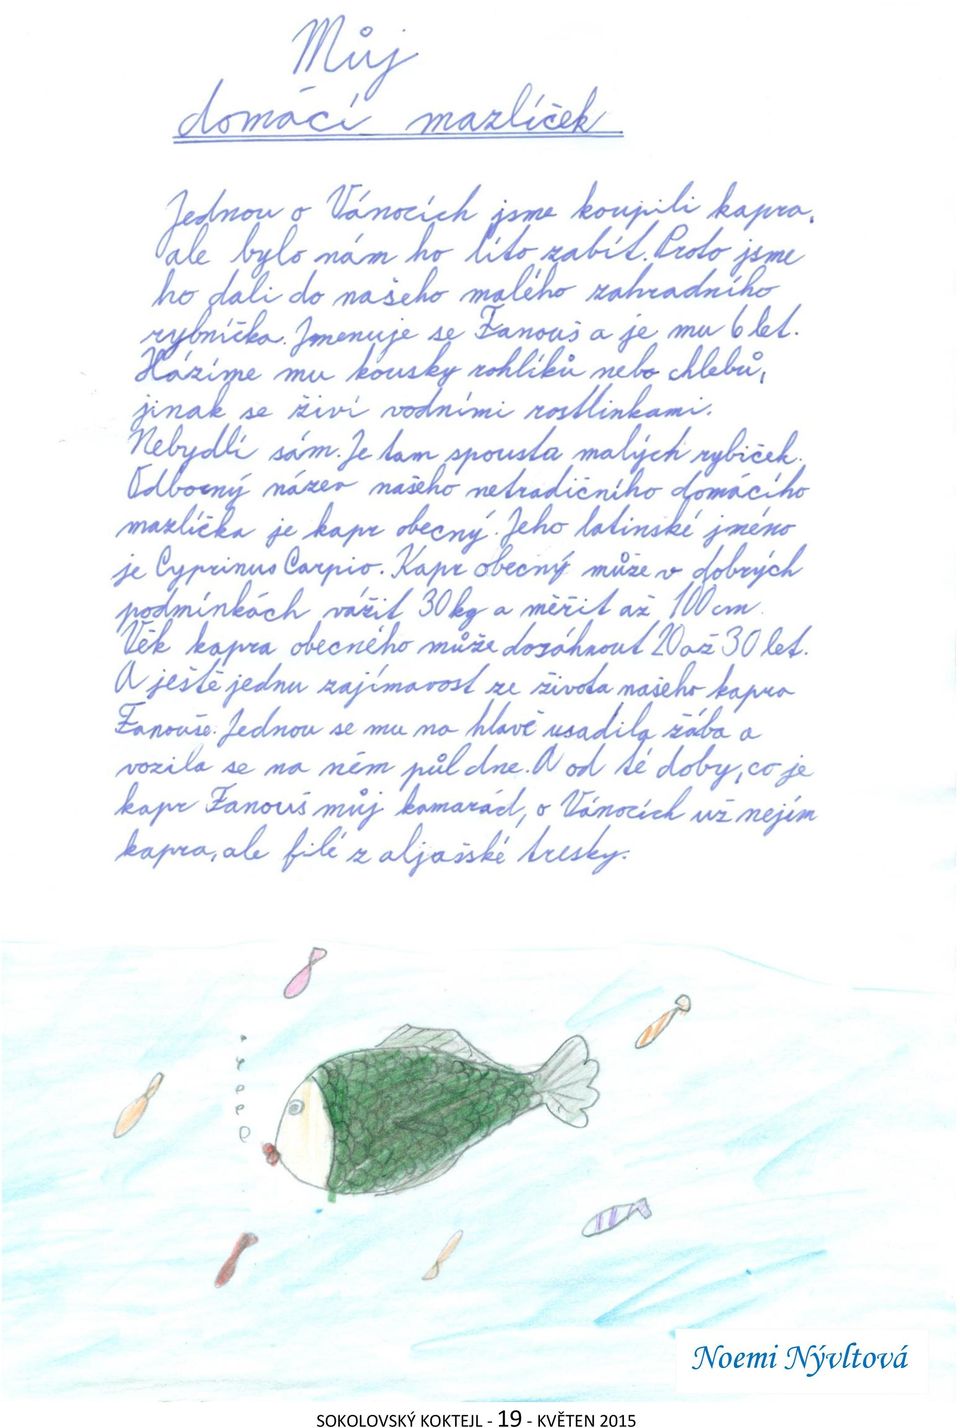 Můj
domácí mazlíček
Jednou o Vánocích jsme koupili kapra,
ale bylo nám ho líto zabít. Proto jsme
ho dali do našeho malého zahradního
rybníčka. Jmenuje se Fanouš a je mu 6 let.
Házíme mu kousky rohlíků nebo chlebů,
jinak se živí vodními rostlinkami.
Nebydlí sám. Je tam spousta malých rybiček.
Odborný název našeho netradičního domácího
mazlíčka je kapr obecný. Jeho latinské jméno
je Cyprinus Carpio. Kapr obecný může v dobrých
podmínkách vážit 30 kg a měřit až 100 cm.
Věk kapra obecného může dosáhnout 20 až 30 let.
A ještě jednu zajímavost ze života našeho kapra
Fanouše. Jednou se mu na hlavě usadila žába a
vozila se na něm půl dne. A od té doby, co je
kapr Fanouš můj kamarád, o Vánocích už nejím
kapra, ale filé z aljašské tresky.
Noemi Nývltová
SOKOLOVSKÝ KOKTEJL - 19 - KVĚTEN 2015